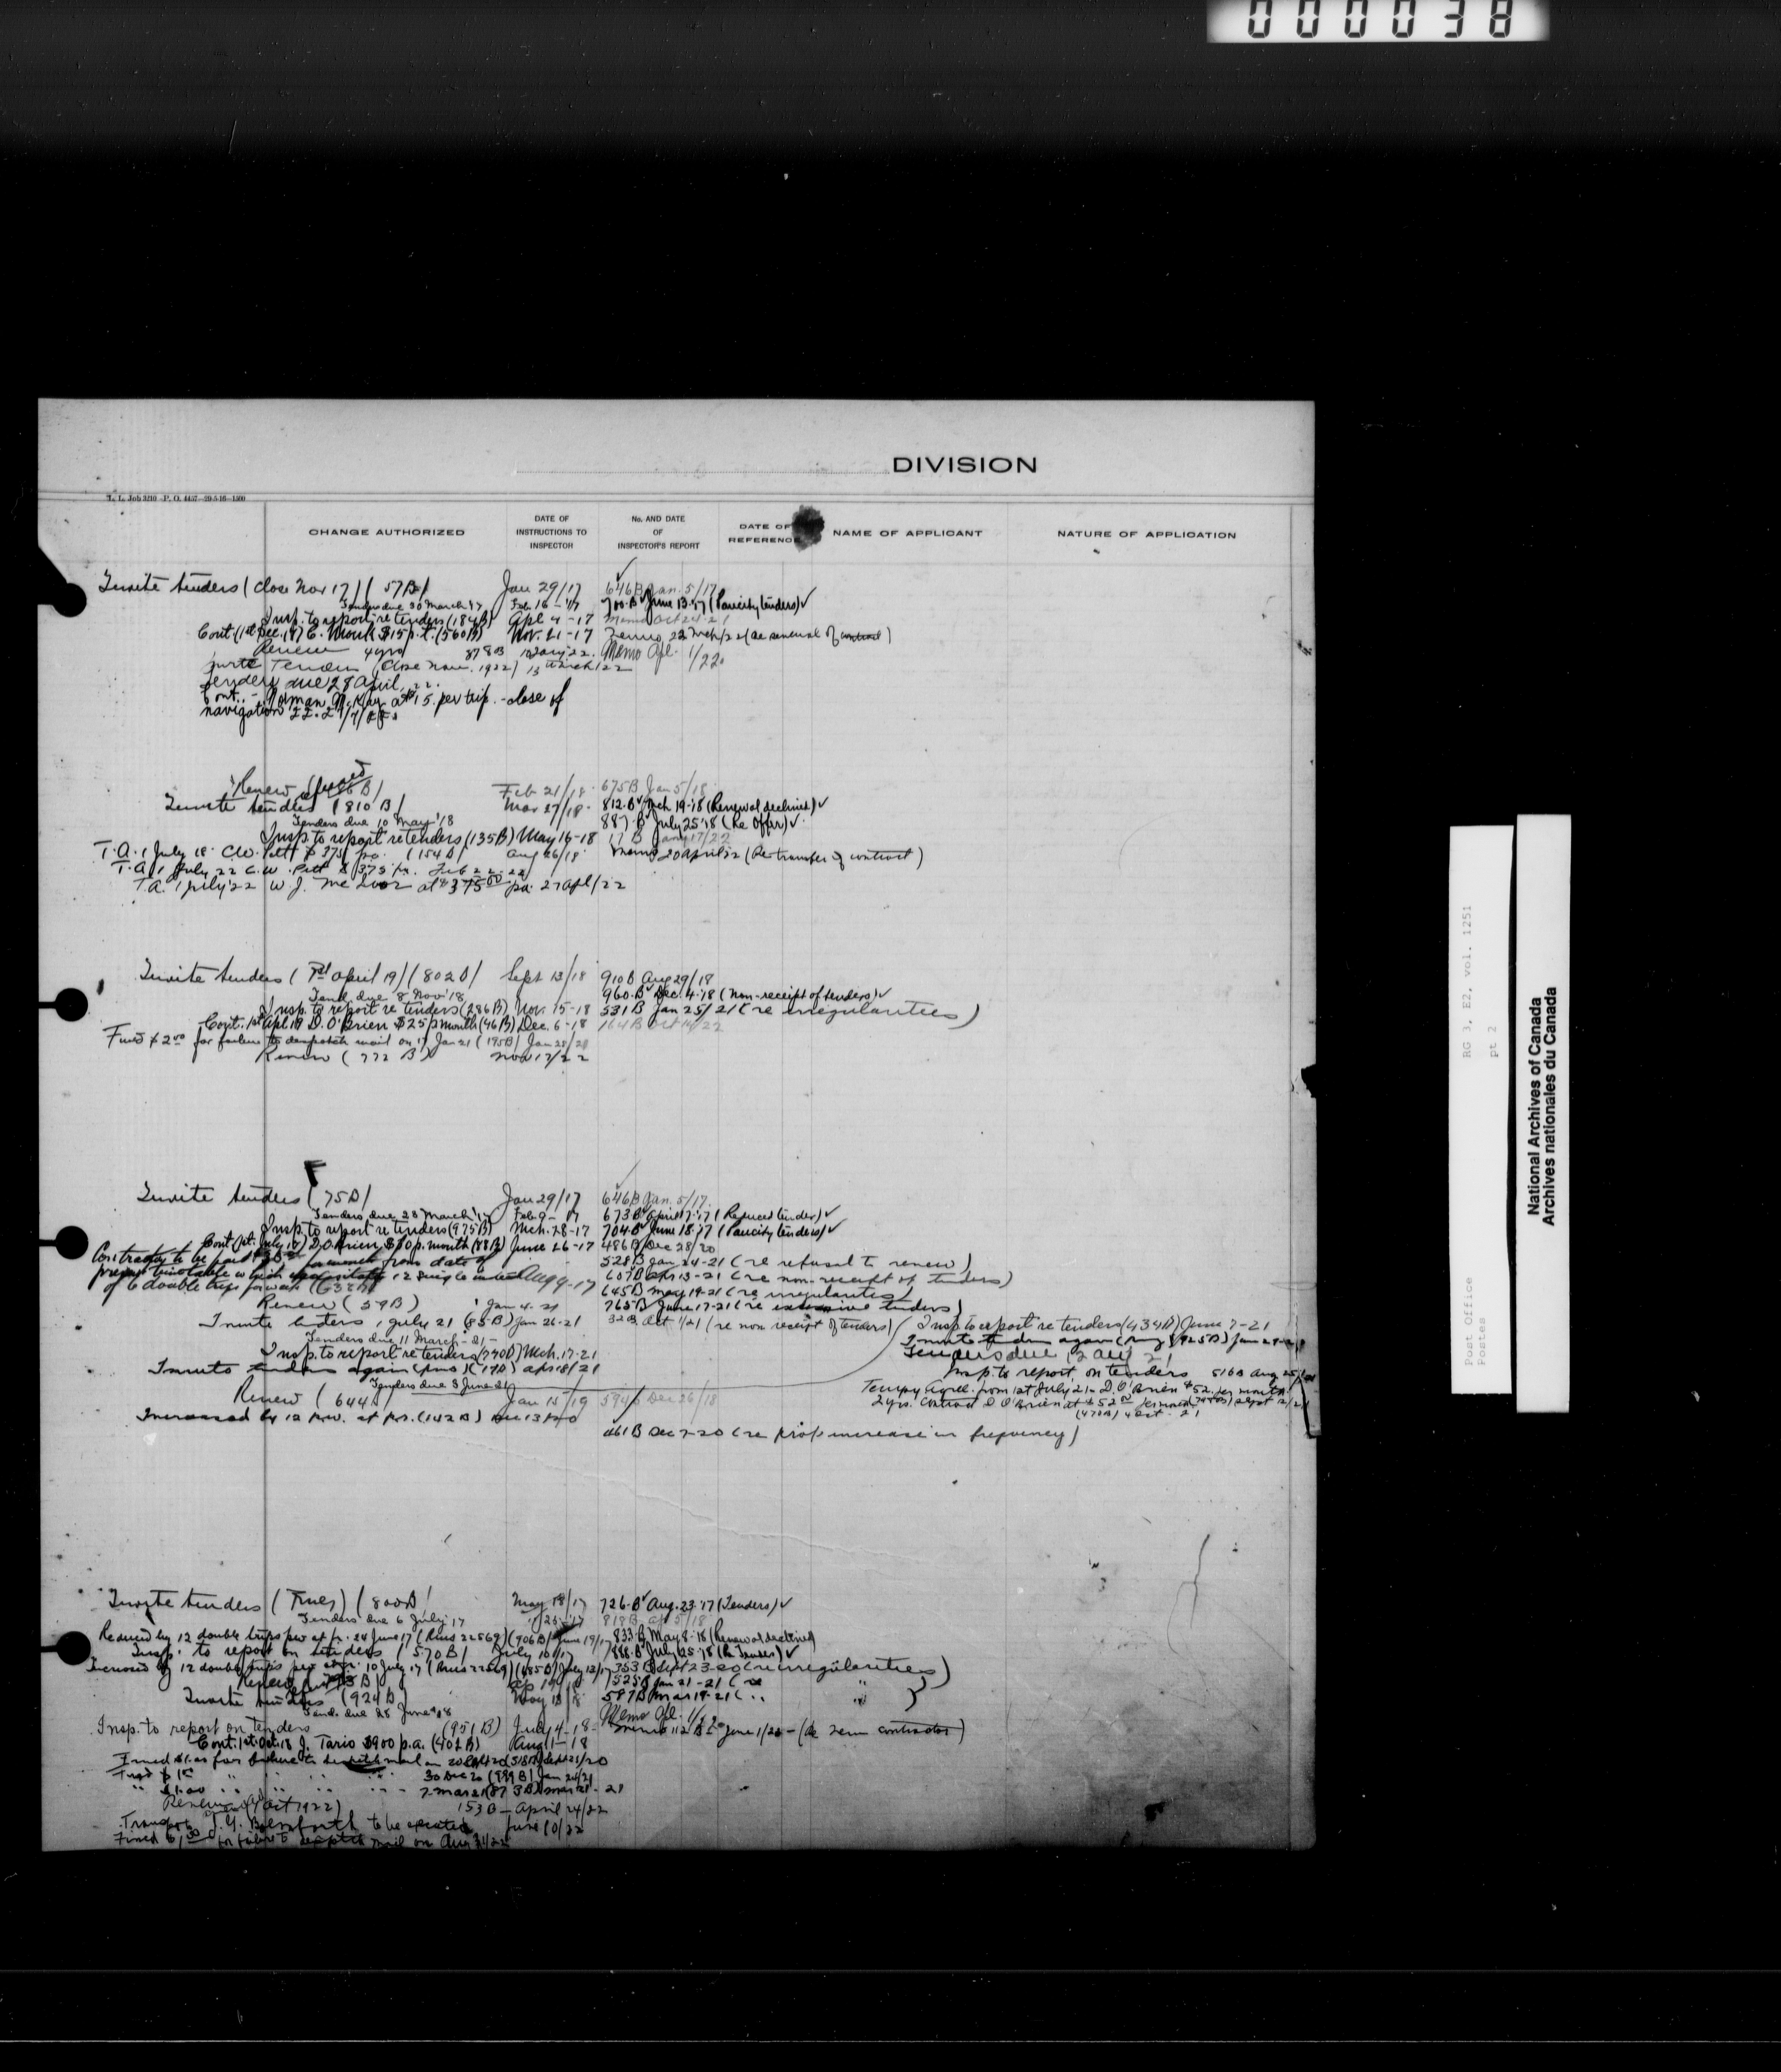 000038
DIVISION
T. L. Job 3210—P. O. 4457—29-5-16—1500
CHANGE AUTHORIZED
DATE OF INSTRUCTIONS TO INSPECTOR
No. AND DATE OF INSPECTOR'S REPORT
DATE OF REFERENCE
NAME OF APPLICANT
NATURE OF APPLICATION
Invite tenders (close Nov 17) (57B) Jan 29/17 646B Jan. 5/17
Tenders due 30 March '17 Feb 16-'17 700-B June 13-17 (Paucity tenders) ✓
Insp. to report re tenders (184B) Apl 4-17 Memo Oct 24-21
Cont. (1st Dec. 17) C. Mouk $15 p.t. (560B) Nov. 21-17 Memo 22 Mch/22 (re renewal of contract)
Renew 4 yrs 878B 10 Jany 22. Memo Apl. 1/22
Invite Tenders (Close Nav. 1922) 13 March/22
Tenders due 28 April 22.
Cont. - Norman McKay at $15. per trip. - close of
navigation 22.
Renew refused Feb 21/18 675B Jan 5/18
Invite tenders (810B) Mar 27/18 812-B Mch 19-18 (Renewal declined) ✓
Tenders due 10 May '18 887-B July 25-18 (Re Offer) ✓
Insp. to report re tenders (135B) May 16-18 17 B Jany 17/22
T.A. 1 July 18. C.W. Pett $375 pa. (154B) Aug 26/18 Memo 20 April 22 (Re transfer of contract)
T.A. 1 July 22 C.W. Pett $375 pa. Feb 22-22
T.A. 1 July 22 W. J. McIvor at $375.00 pa. 27 Apl/22
Invite tenders (1st April 19) (802B) Sept 13/18 910B Aug 29/18
Tend. due 8 Nov '18 960-B Dec. 4-18 (Non-receipt of tenders) ✓
Insp. to report re tenders (286B) Nov. 15-18 531B Jan 25/21 (re irregularities)
Cont. 1st Apl 19 D. O'Brien $25 p month (46B) Dec. 6-18 164B Oct 14/22
Fined $2.00 for failure to despatch mail on 17 Jan 21 (195B) Jan 28/21
Renew (772 B) Nov 17/22
Invite tenders (75B) Jan 29/17 646B Jan. 5/17
Tenders due 23 March '17 Feb 9-17 673B April 17-17 (Reduced tender) ✓
Insp. to report re tenders (975B) Mch. 28-17 704B June 18-17 (Paucity tenders) ✓
Cont. (1st July 17) D. O'Brien $30 p. month (88B) June 26-17 486B Dec 28/20
528B Jan 24-21 (re refusal to renew)
of 6 double trips per week Aug 9-17 607B Apr 13-21 (re non-receipt of tenders)
645B May 19-21 (re irregularities)
Renew (59B) Jan 4-21 765B June 17-21 (re excessive tenders)
Invite tenders, July 21 (85B) Jan 26-21 32B Oct 1/21 (re non receipt of tenders) Insp to report re tenders (434B) June 7-21
Tenders due 11 March-21- Invite tenders again
Tenders due 12 Aug 21
Insp. to report re tenders (790B) Mch. 17-21 Insp. to report on tenders 516B Aug 25/21
Invite tenders again (17B) Apr 18/21
Tenders due 3 June 21
Tempy agree. from 1st July 21 - D. O'Brien $52. per month
Renew (644B) Jan 15/19 594B Dec 26/18 2 yrs. contract D. O'Brien at $52.00 per month Sept 12/21
(470B) 4 Oct. 21
Increased by 12 p.w. at p.r. (142B) Dec 13 1920
461B Dec 7-20 (re prop. increase in frequency)
Invite tenders (800B) May 18/17 726-B Aug. 23-17 (Tenders) ✓
Tenders due 6 July '17 818B Ap 5/18
Reduced by 12 double trips pw at p.r. 24 June 17 (Rms 22569) (906B) June 19/17 833-B May 8-18 (Renewal declined)
Insp. to report on tenders (570B) July 10/17 888-B July 25-18 (Re Tender) ✓
Increased by 12 double trips per 10 July 17 (Rms 22569) (485B) July 12/17 353 B Sept 23-20 (re irregularities)
525B Jan 21-21 (re "
Invite tenders (924B) May 18/18 587B Mar 19-21 ( " "
Tend. due 28 June 18 Memo Apl. 1/22
Insp. to report on tenders (951B) July 4-18 - Memo 112B June 1/22 - (re new contractor)
Cont. 1st Oct. 18 J. Tario $900 p.a. (402B) Aug 1-18
Fined $1.00 for failure to despatch mail on 20 Sept 20 (518B) Sept 21/20
Fined $1.00 " " " " 30 Dec 20 (989B) Jan 24/21
" $1.00 " " " " 7 Mar 21 (873B) Mar 21-21
Renew (1 Oct 1922) 153B - April 24/22
Transfer to be executed June 10/22
Fined for failure to despatch mail on Aug 31/22
RG 3, E2, vol. 1251
pt 2
Post Office
Postes
National Archives of Canada
Archives nationales du Canada